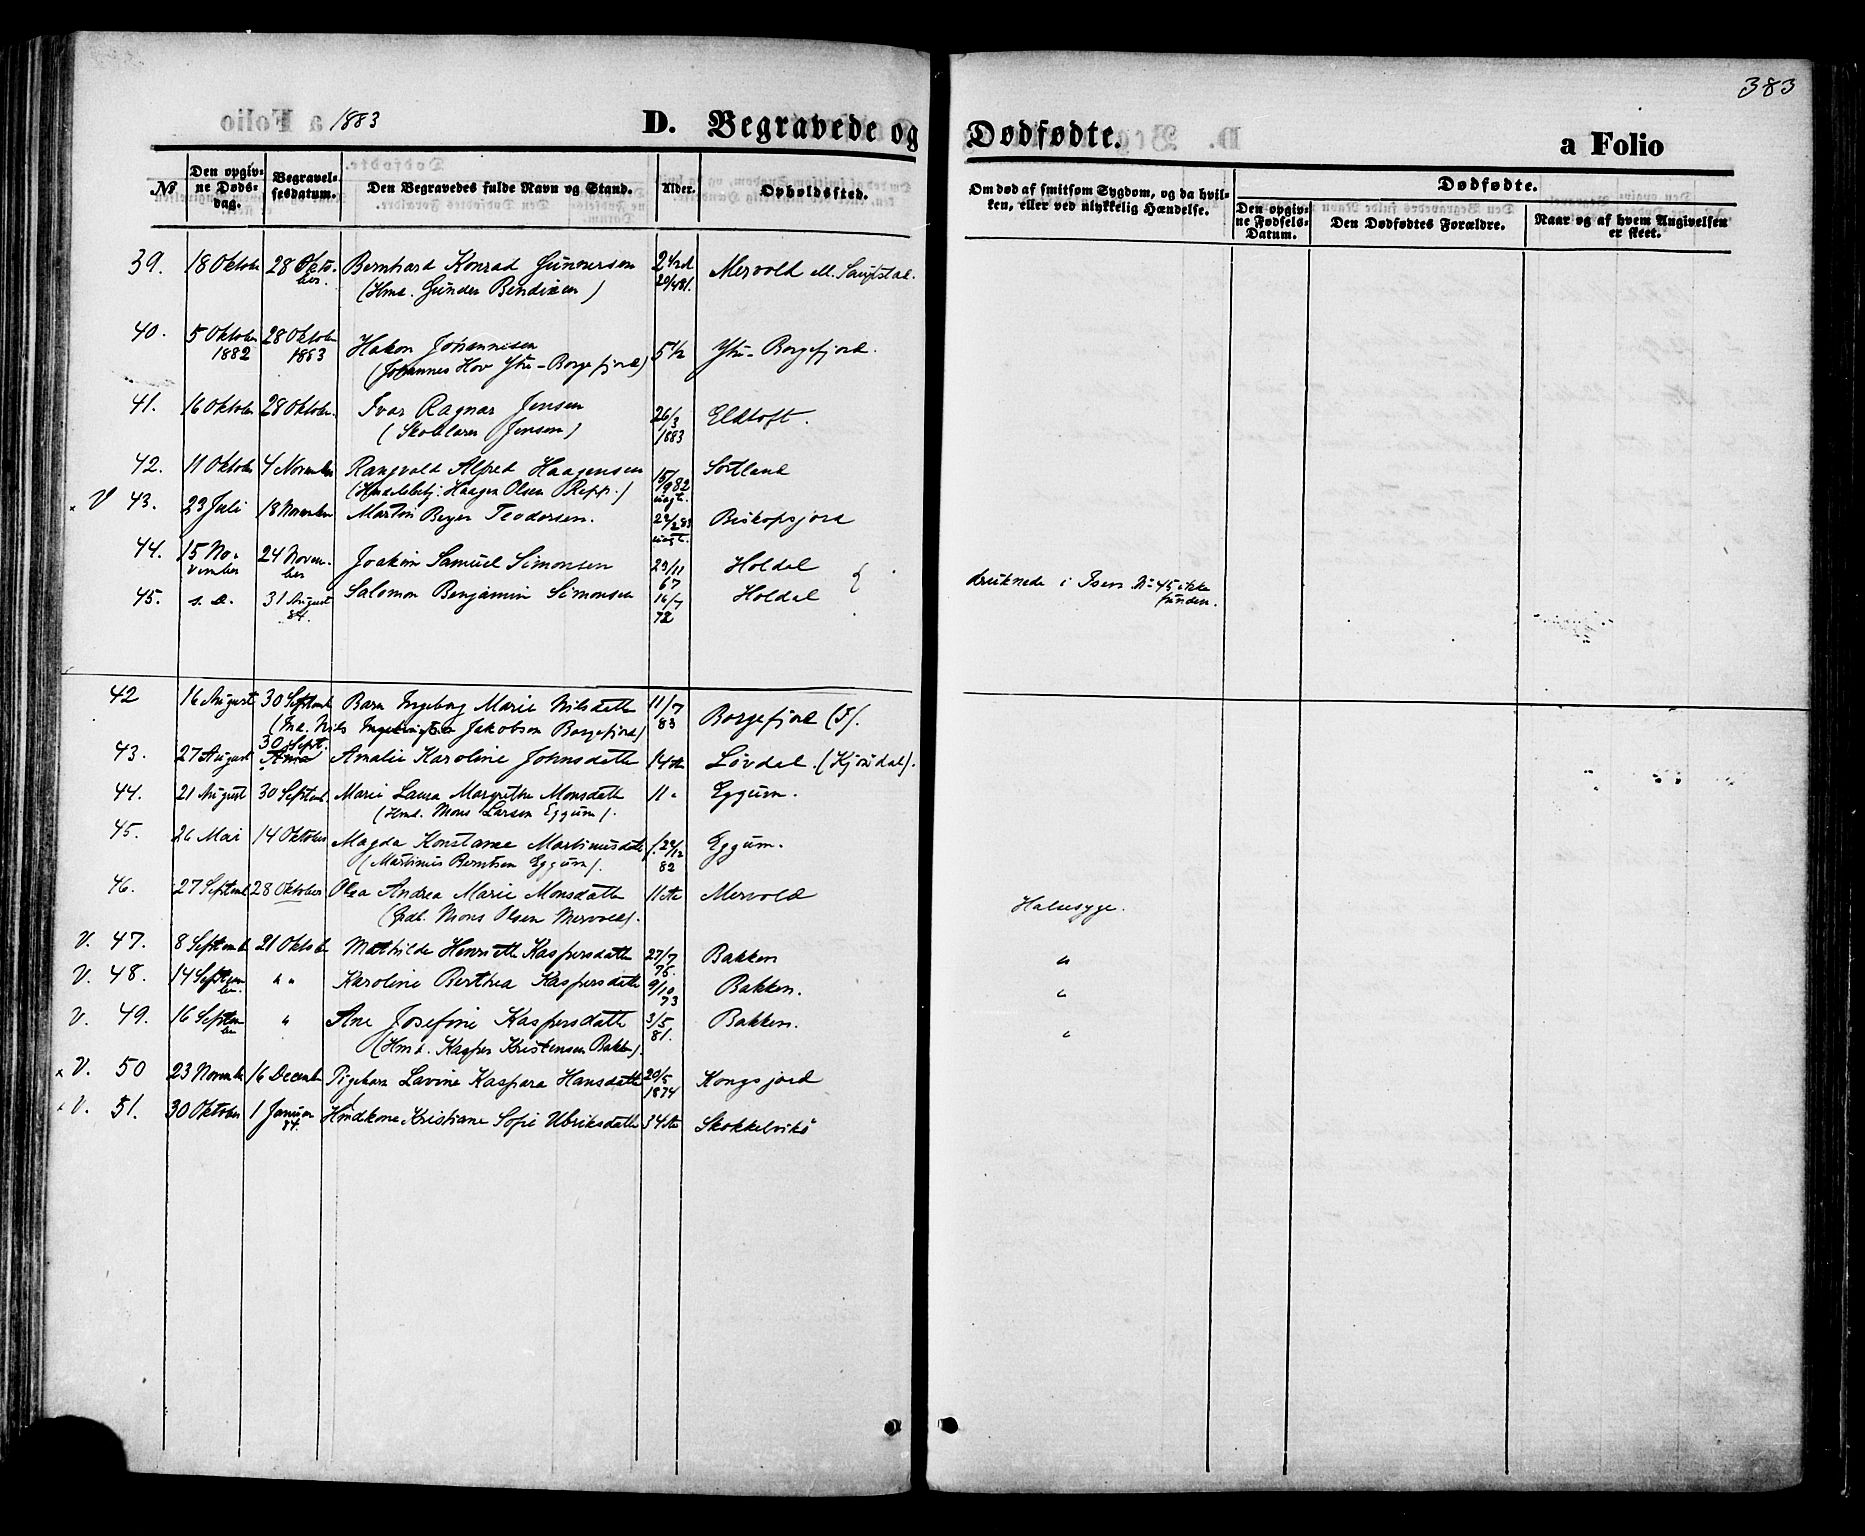 a Folio 1883 D. Begravede og Dødfødte. a Folio 383
No Den opgivne Dødsdag. Begravelsesdatum. Den Begravedes fulde Navn og Stand. Alder. Opholdssted. Om død af smitsom Sygdom, og da hvilken, eller ved ulykkelig Hændelse. Dødfødte. Den opgivne Fødsels-Datum. Den Dødfødtes Forældre. Naar og af hvem Angivelsen er skeet.
39. 18 Oktober 28 Oktober. Bernhard Konrad Gunnersen Mervold
(Hmd. Gunder Bendixen)
40. 5 Oktober 1882 28 Oktober 1883 Hakon Johannesen 5 1/2 Ytre-Borgefjord.
(Johannes Hov Ytre-Borgefjord)
41. 16 Oktober 28 Oktober. Ivar Ragnar Jensen 26/3 1883 Eldtoft.
(Skolelærer Jensen)
42. 11 Oktober 4 November Rangvald Alfred Haagensen 15/9 82 Sortland
(Handelsbetj. Haagen Olsen Repp.)
V 43. 23 Juli 18 November Martin Beyer Teodorsen. Biskopsjord
44. 15 November 24 November Joakim Samuel Simonsen 29/11 67 Holdal
45. s. d. 31 August 84. Salomon Benjamin Simonsen 16/7 72 Holdal druknede i Isen No 45 ikke funden.
42 16 August 30 Septemb. Barn Ingeborg Marie Nilsdatter 11/7 83 Borgefjord (I).
(Nils Jakobsen Borgefjord)
43. 27 August 30 Sept. Amalie Karoline Johnsdatter 14 Løvdal.
44. 21 August 30 Septemb. Marie Laura Margrethe Monsdatter 11 Eggum.
(Hmd. Mons Larsen Eggum).
45. 26 Mai 14 Oktober Magda Konstanse Martinusdatter 82 Eggum.
(Martinus Berntsen Eggum).
46. 27 Septemb 28 Oktober Olea Andrea Marie Monsdatter 11 Mervold Halsesyge.
(Mons Olsen Mervold).
V. 47. 8 Septemb 21 Oktob Mathilde Henriette Kaspersdatter 27/7 75. Bakken "
V. 48. 14 September. " " Karoline Berthea Kaspersdatter 9/10 73 Bakken. "
V. 49. 16 September " Ane Josefine Kaspersdatter 3/5 81. Bakken. "
(Hmd. Kasper Kristensen Bakken).
x V. 50 23 November 16 December Pigebarn Lavine Kaspara Hansdatter 20/5 1874 Kongsjord
V. 51. 30 Oktober 1 Januar 84. Husmkone Kristiane Sofie Ulriksdatter 34 Skokkelvik